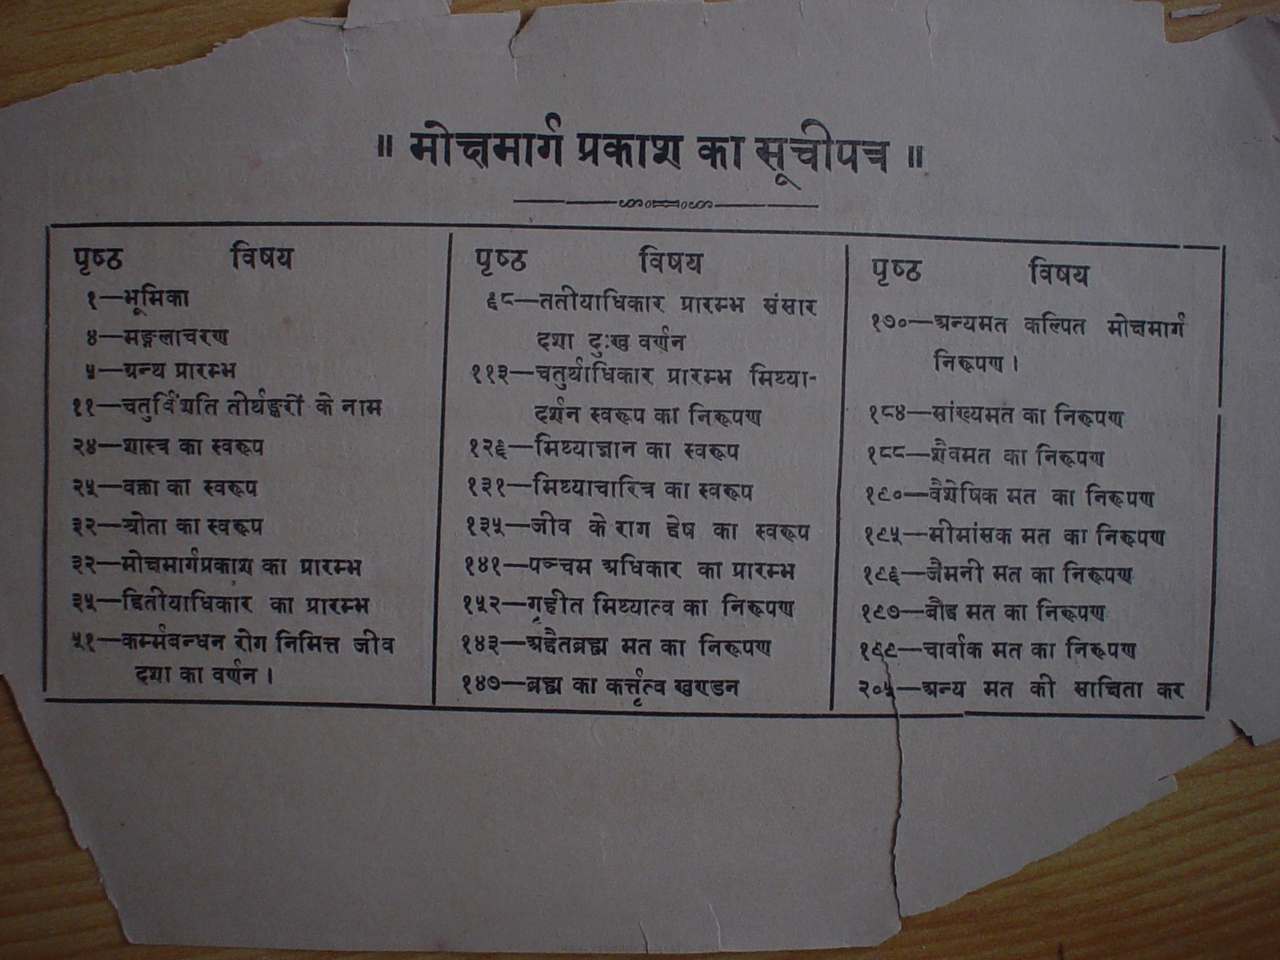 ॥ मोक्षमार्ग प्रकाश का सूचीपत्र ॥
पृष्ठ विषय
१—भूमिका
४—मङ्गलाचरण
५—ग्रन्थ प्रारम्भ
११—चतुर्विंशति तीर्थङ्करों के नाम
२४—शास्त्र का स्वरूप
२५—वक्ता का स्वरूप
३२—श्रोता का स्वरूप
३२—मोक्षमार्गप्रकाश का प्रारम्भ
३५—द्वितीयाधिकार का प्रारम्भ
५१—कर्म्मबन्धन रोग निमित्त जीव
दशा का वर्णन ।
पृष्ठ विषय
६८—ततीयाधिकार प्रारम्भ संसार
दशा दुःख वर्णन
११३—चतुर्थाधिकार प्रारम्भ मिथ्या-
दर्शन स्वरूप का निरूपण
१२६—मिथ्याज्ञान का स्वरूप
१३१—मिथ्याचारित्र का स्वरूप
१३५—जीव के राग द्वेष का स्वरूप
१४१—पञ्चम अधिकार का प्रारम्भ
१५२—गृहीत मिथ्यात्व का निरूपण
१४३—अद्वैतब्रह्म मत का निरूपण
१४७—ब्रह्म का कर्त्तृत्व खण्डन
पृष्ठ विषय
१७०—अन्यमत कल्पित मोक्षमार्ग
निरूपण ।
१८४—सांख्यमत का निरूपण
१८८—शैवमत का निरूपण
१९०—वैशेषिक मत का निरूपण
१९५—मीमांसक मत का निरूपण
१९६—जैमनी मत का निरूपण
१९७—बौद्ध मत का निरूपण
१९९—चार्वाक मत का निरूपण
२०५—अन्य मत की साक्षिता कर